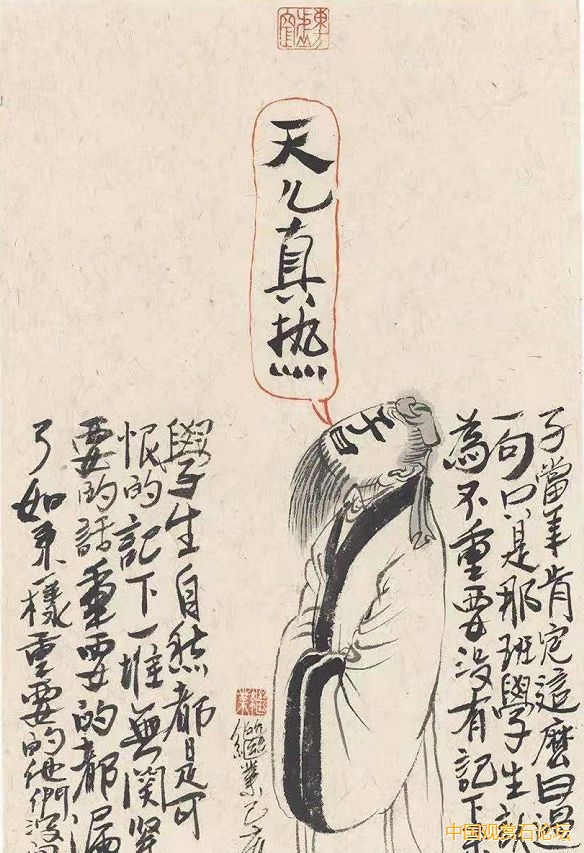 天儿真热
子曰
子當年肯定這麼曰過
一句只是那班學生認
為不重要沒有記下
學生自然都是可
恨的記下一堆無関緊
要的話重要的都漏
了如來一樣重要的他們沒
中国观赏石论坛